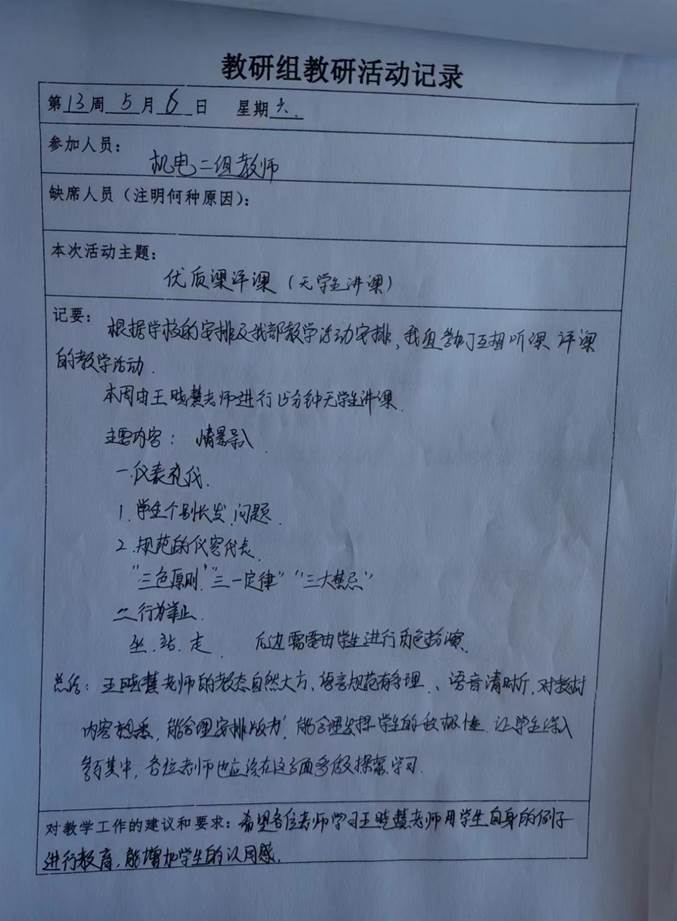 教研组教研活动记录
第13周5月6日 星期六.
参加人员：
机电二组教师
缺席人员（注明何种原因）：
本次活动主题：
优质课评课（无学生讲课）
记要： 根据学校的安排及我部教学活动安排，我组举行互相听课 评课
的教学活动.
本周由王晓慧老师进行15分钟无学生讲课.
主要内容： 情景导入
一.仪表礼仪.
1.学生个别长发问题.
2.规范的仪容仪表.
"三色原则""三一定律""三大禁忌"
二.行为举止.
坐.站.走. 后边需要由学生进行角色扮演.
总结：王晓慧老师的教态自然大方、语言规范有条理、语音清晰,对教材
内容熟悉,能合理安排 能合理发挥学生的积极性.让学生深入
其中,各位老师也应该在这方面多做探索学习.
对教学工作的建议和要求：希望各位老师学习王晓慧老师用学生自身的例子
进行教育,能增加学生的认同感.